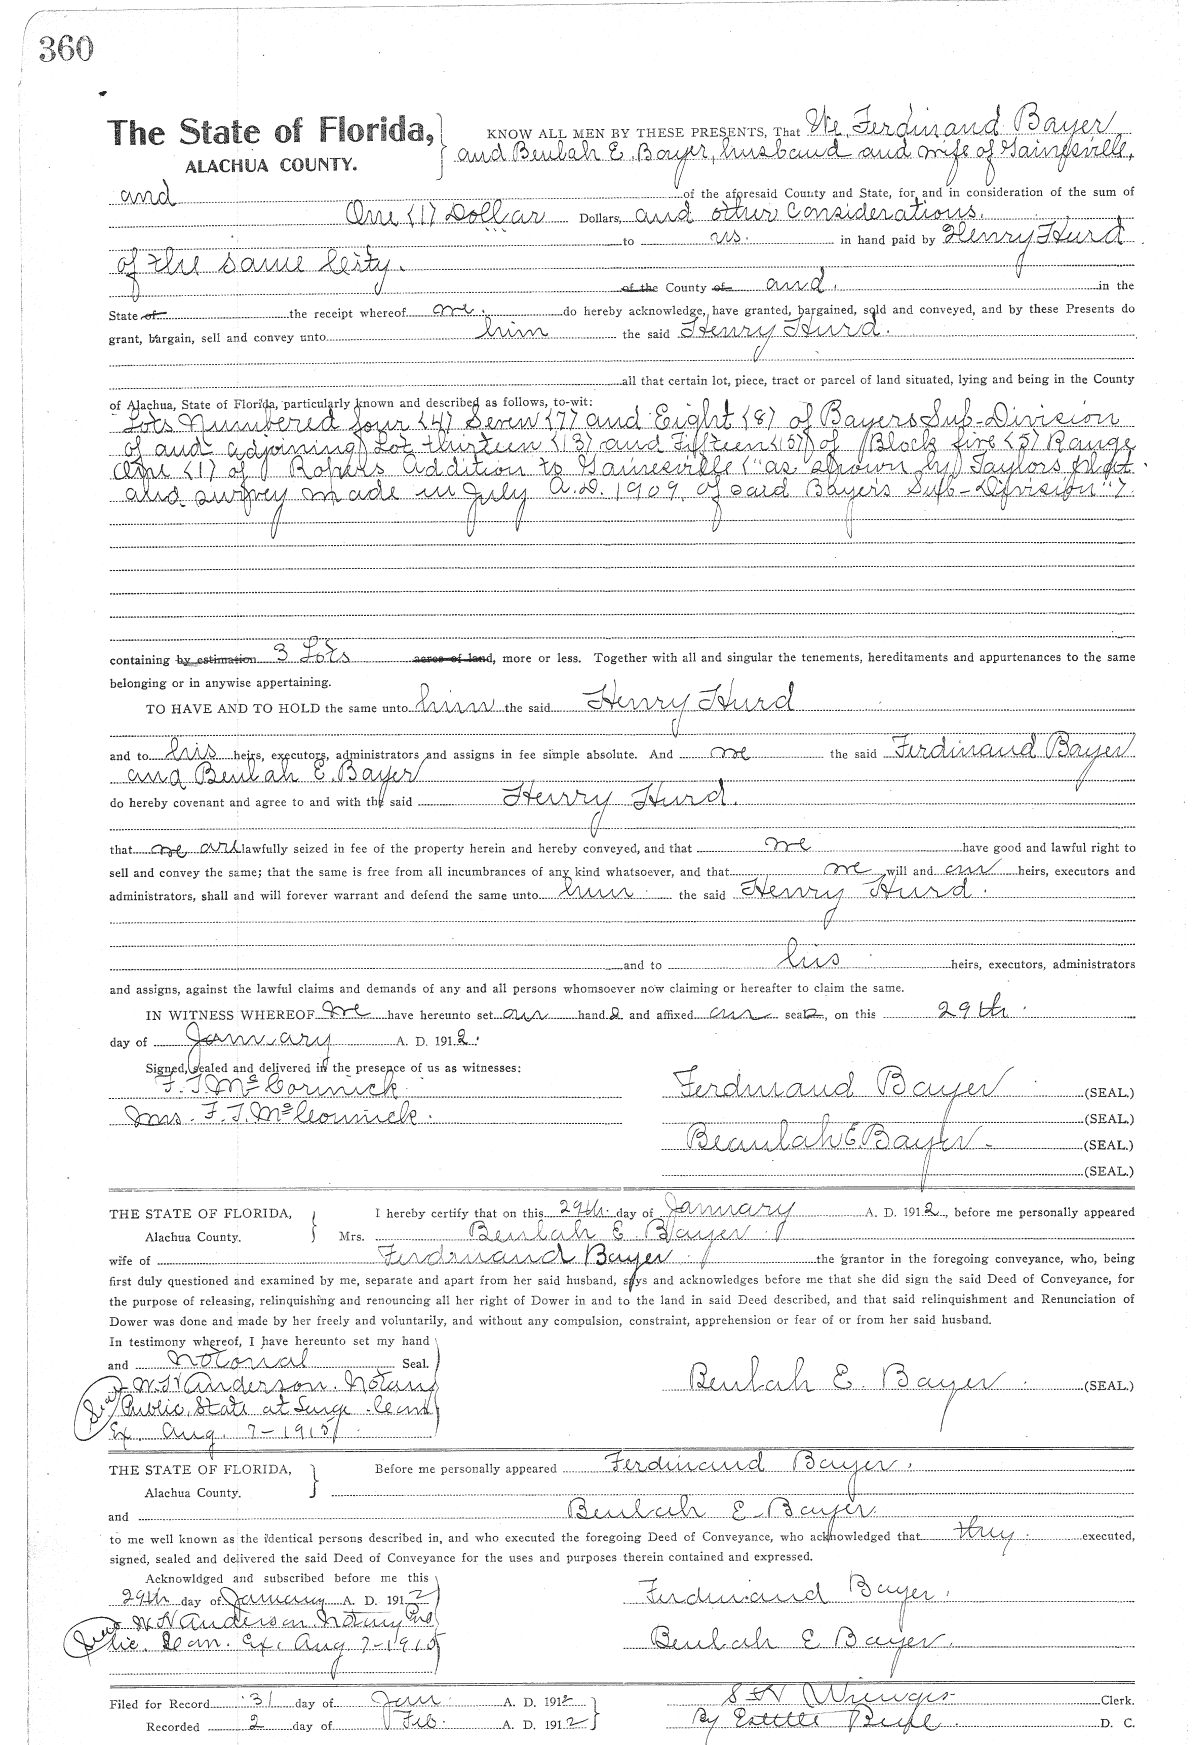 360
The State of Florida, KNOW ALL MEN BY THESE PRESENTS, That We, Ferdinand Bayer
ALACHUA COUNTY. and Beulah E. Bayer, husband and wife of Gainesville,
and of the aforesaid County and State, for and in consideration of the sum of
One (1) Dollar Dollars, and other Considerations.
to us. in hand paid by Henry Hurd
of the same City.
of the County of and. in the
State of the receipt whereof we. do hereby acknowledge, have granted, bargained, sold and conveyed, and by these Presents do
grant, bargain, sell and convey unto him the said Henry Hurd.
all that certain lot, piece, tract or parcel of land situated, lying and being in the County
of Alachua, State of Florida, particularly known and described as follows, to-wit:
Lots Numbered four (4) Seven (7) and Eight (8) of Bayers Sub-Division
of and adjoining Lot thirteen (13) and Fifteen (15) of Block five (5) Range
One (1) of Ropers Addition to Gainesville ("as shown by Taylors plat
and survey made in July A.D. 1909. of said Bayer's Sub-Division").
containing by estimation 3 Lots acres of land, more or less. Together with all and singular the tenements, hereditaments and appurtenances to the same
belonging or in anywise appertaining.
TO HAVE AND TO HOLD the same unto him the said Henry Hurd
and to his heirs, executors, administrators and assigns in fee simple absolute. And we the said Ferdinand Bayer
and Beulah E. Bayer
do hereby covenant and agree to and with the said Henry Hurd.
that we are lawfully seized in fee of the property herein and hereby conveyed, and that we have good and lawful right to
sell and convey the same; that the same is free from all incumbrances of any kind whatsoever, and that we will and our heirs, executors and
administrators, shall and will forever warrant and defend the same unto him the said Henry Hurd.
and to his heirs, executors, administrators
and assigns, against the lawful claims and demands of any and all persons whomsoever now claiming or hereafter to claim the same.
IN WITNESS WHEREOF We have hereunto set our hands and affixed our seals, on this 29th.
day of January A. D. 1912.
Signed, sealed and delivered in the presence of us as witnesses:
F. J. McCormick. Ferdinand Bayer (SEAL.)
Mrs. F. J. McCormick. (SEAL.)
Beaulah E Bayer. (SEAL.)
(SEAL.)
THE STATE OF FLORIDA, I hereby certify that on this 29th. day of January A. D. 1912, before me personally appeared
Alachua County. Mrs. Beulah E. Bayer.
wife of Ferdinand Bayer. the grantor in the foregoing conveyance, who, being
first duly questioned and examined by me, separate and apart from her said husband, says and acknowledges before me that she did sign the said Deed of Conveyance, for
the purpose of releasing, relinquishing and renouncing all her right of Dower in and to the land in said Deed described, and that said relinquishment and Renunciation of
Dower was done and made by her freely and voluntarily, and without any compulsion, constraint, apprehension or fear of or from her said husband.
In testimony whereof, I have hereunto set my hand
and Notorial Seal.
W. N Anderson. Notary Beulah E. Bayer. (SEAL.)
Seal Public, State at Large
Ex. Aug. 7-1915
THE STATE OF FLORIDA, Before me personally appeared Ferdinand Bayer.
Alachua County.
and Beulah E. Bayer.
to me well known as the identical persons described in, and who executed the foregoing Deed of Conveyance, who acknowledged that they. executed,
signed, sealed and delivered the said Deed of Conveyance for the uses and purposes therein contained and expressed.
Acknowldged and subscribed before me this
29th day of January A. D. 1912 Ferdinand Bayer.
Seal W. N Anderson Notary Pub
lic. Ex. Aug 7-1915 Beulah E Bayer.
Filed for Record 31 day of Jan. A. D. 1912 S H Wienges Clerk.
Recorded 2 day of Feb. A. D. 1912 By D. C.